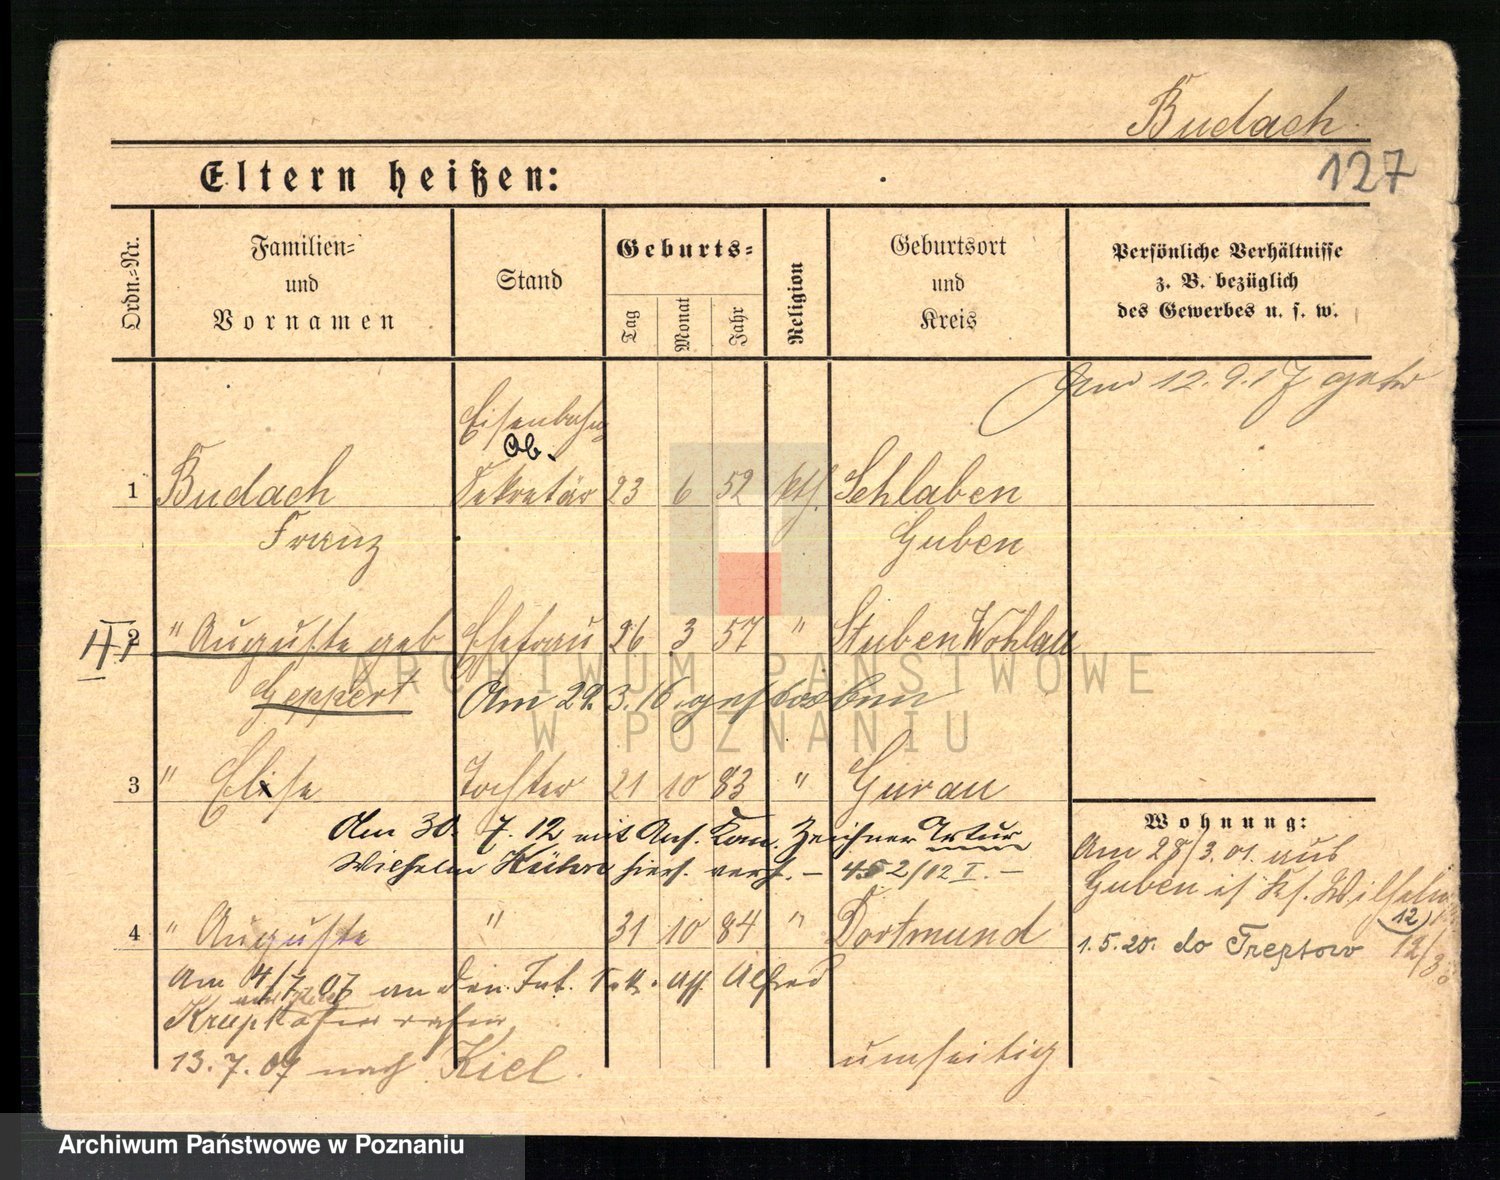 Budach
127
Eltern heißen:
Ordn.-Nr.
Familien-
und
Vornamen
Stand
Geburts-
Tag
Monat
Jahr
Religion
Geburtsort
und
Kreis
Persönliche Verhältnisse
z. B. bezüglich
des Gewerbes u. s. w.
Am 12.9.17
Eisenbahn
Ob.
1 Budach Sekretär 23 6 52 kth. Schlaben
Franz Guben
2 " Auguste geb Ehefrau 26 3 57 " Stuben Wohlau
Geppert Am 29. 3. 16. gestorben
3 " Elise Tochter 21 10 83 " Gurau
Am 30. 7. 12 mit Zeichner Artur
Wilhelm hier verh. – 452/12 I. –
4 " Auguste " 31 10 84 " Dortmund
Am 4/7 07 an den Int. Sekr. Ass. Alfred
13. 7. 07 nach Kiel.
umseitig
Wohnung:
Am 28/3. 01. aus
Guben Wilhelm
12
1. 5. 20. do Treptow
ARCHIWUM PAŃSTWOWE
W POZNANIU
Archiwum Państwowe w Poznaniu